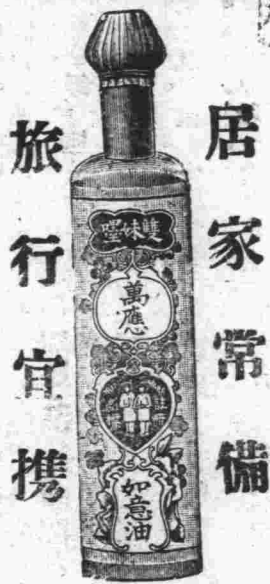 居家常備
旅行宜携
雙妹嚜
萬應
如意油